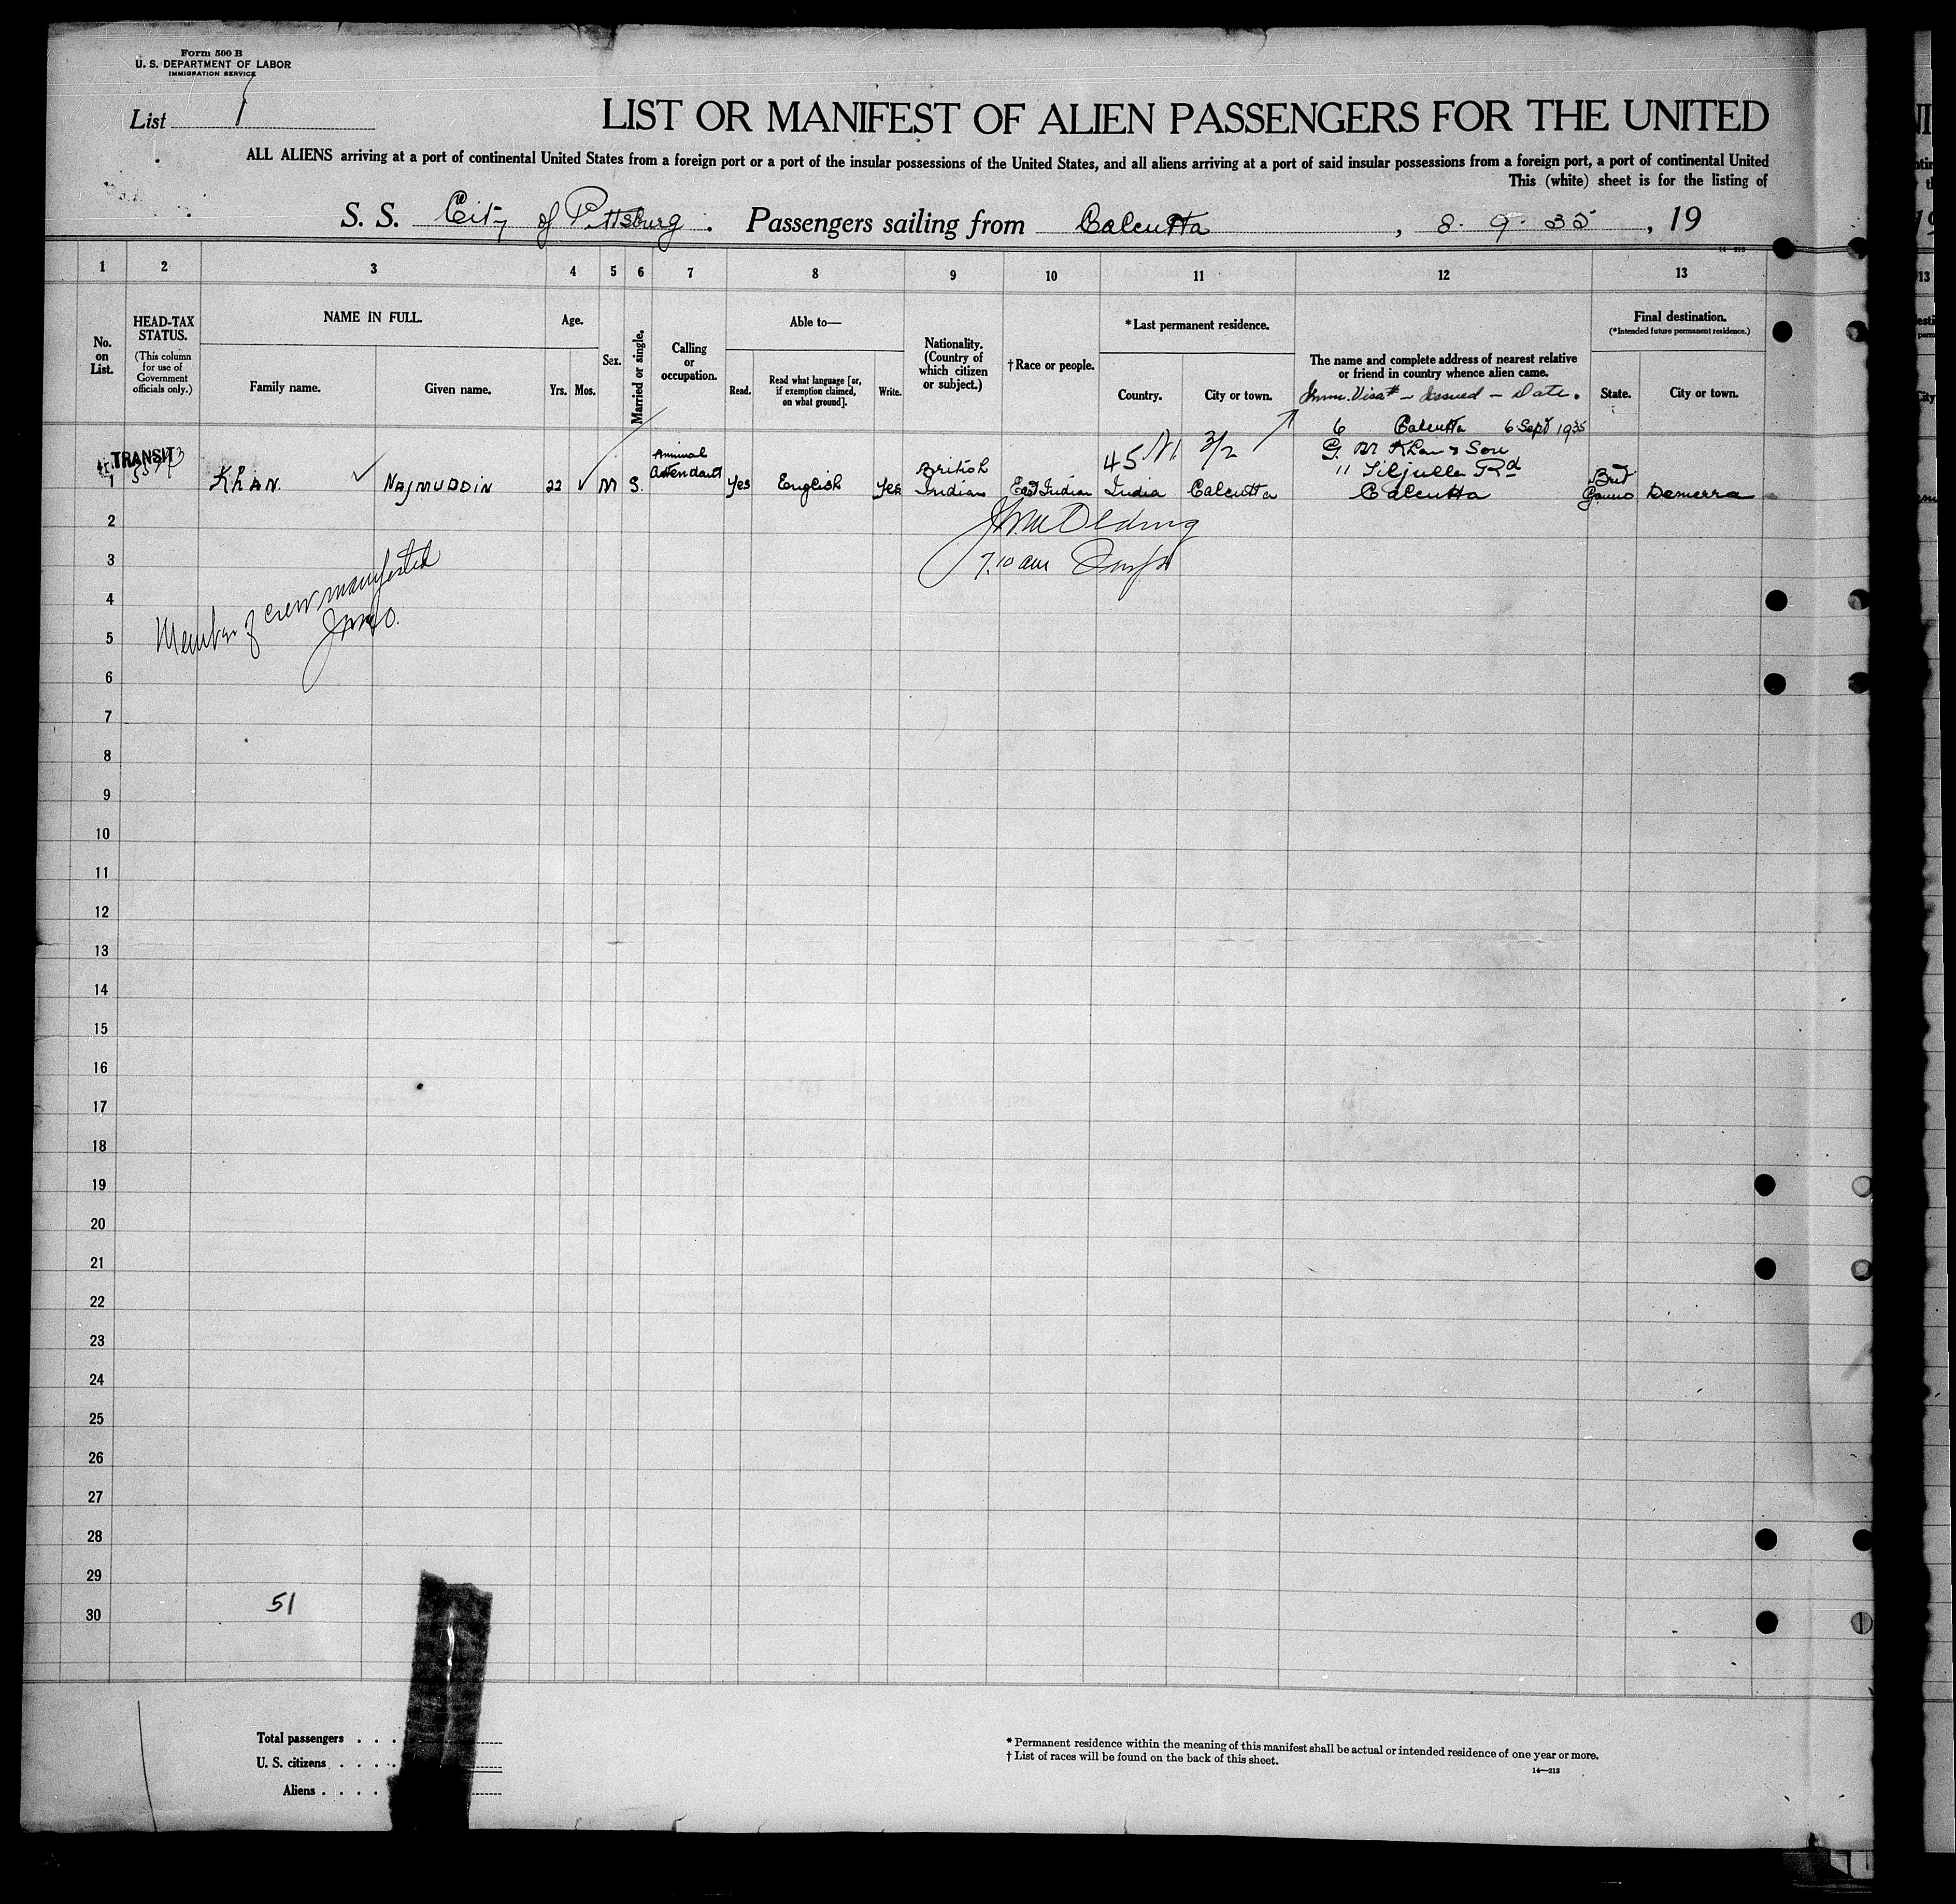 Form 500 B
U. S. DEPARTMENT OF LABOR
IMMIGRATION SERVICE
List 1
LIST OR MANIFEST OF ALIEN PASSENGERS FOR THE UNITED
ALL ALIENS arriving at a port of continental United States from a foreign port or a port of the insular possessions of the United States, and all aliens arriving at a port of said insular possessions from a foreign port, a port of continental United
This (white) sheet is for the listing of
S. S. City of Pittsburg. Passengers sailing from Calcutta, 8. 9. 35, 19
14-213
1 2 3 4 5 6 7 8 9 10 11 12 13
No. on List.
HEAD-TAX STATUS.
(This column for use of Government officials only.)
NAME IN FULL.
Family name.
Given name.
Age.
Yrs. Mos.
Sex.
Married or single.
Calling or occupation.
Able to—
Read.
Read what language [or, if exemption claimed, on what ground].
Write.
Nationality. (Country of which citizen or subject.)
†Race or people.
*Last permanent residence.
Country.
City or town.
The name and complete address of nearest relative or friend in country whence alien came.
Imm. Visa # - Issued - Date.
Final destination.
(*Intended future permanent residence.)
State.
City or town.
6 Calcutta 6 Sept 1935
TRANSIT
45 3/2
G. M Khan & Son
11 Tiljulla Rd
Calcutta
1 KHAN. NAJMUDDIN 22 M S. Animal Attendant Yes English Yes British Indian East Indian India Calcutta Brit Demerra
7.10 am
Member of crew manifested
2
3
4
5
6
7
8
9
10
11
12
13
14
15
16
17
18
19
20
21
22
23
24
25
26
27
28
29
30
51
Total passengers . . .
U. S. citizens . . . .
Aliens . . . .
* Permanent residence within the meaning of this manifest shall be actual or intended residence of one year or more.
† List of races will be found on the back of this sheet.
14—213